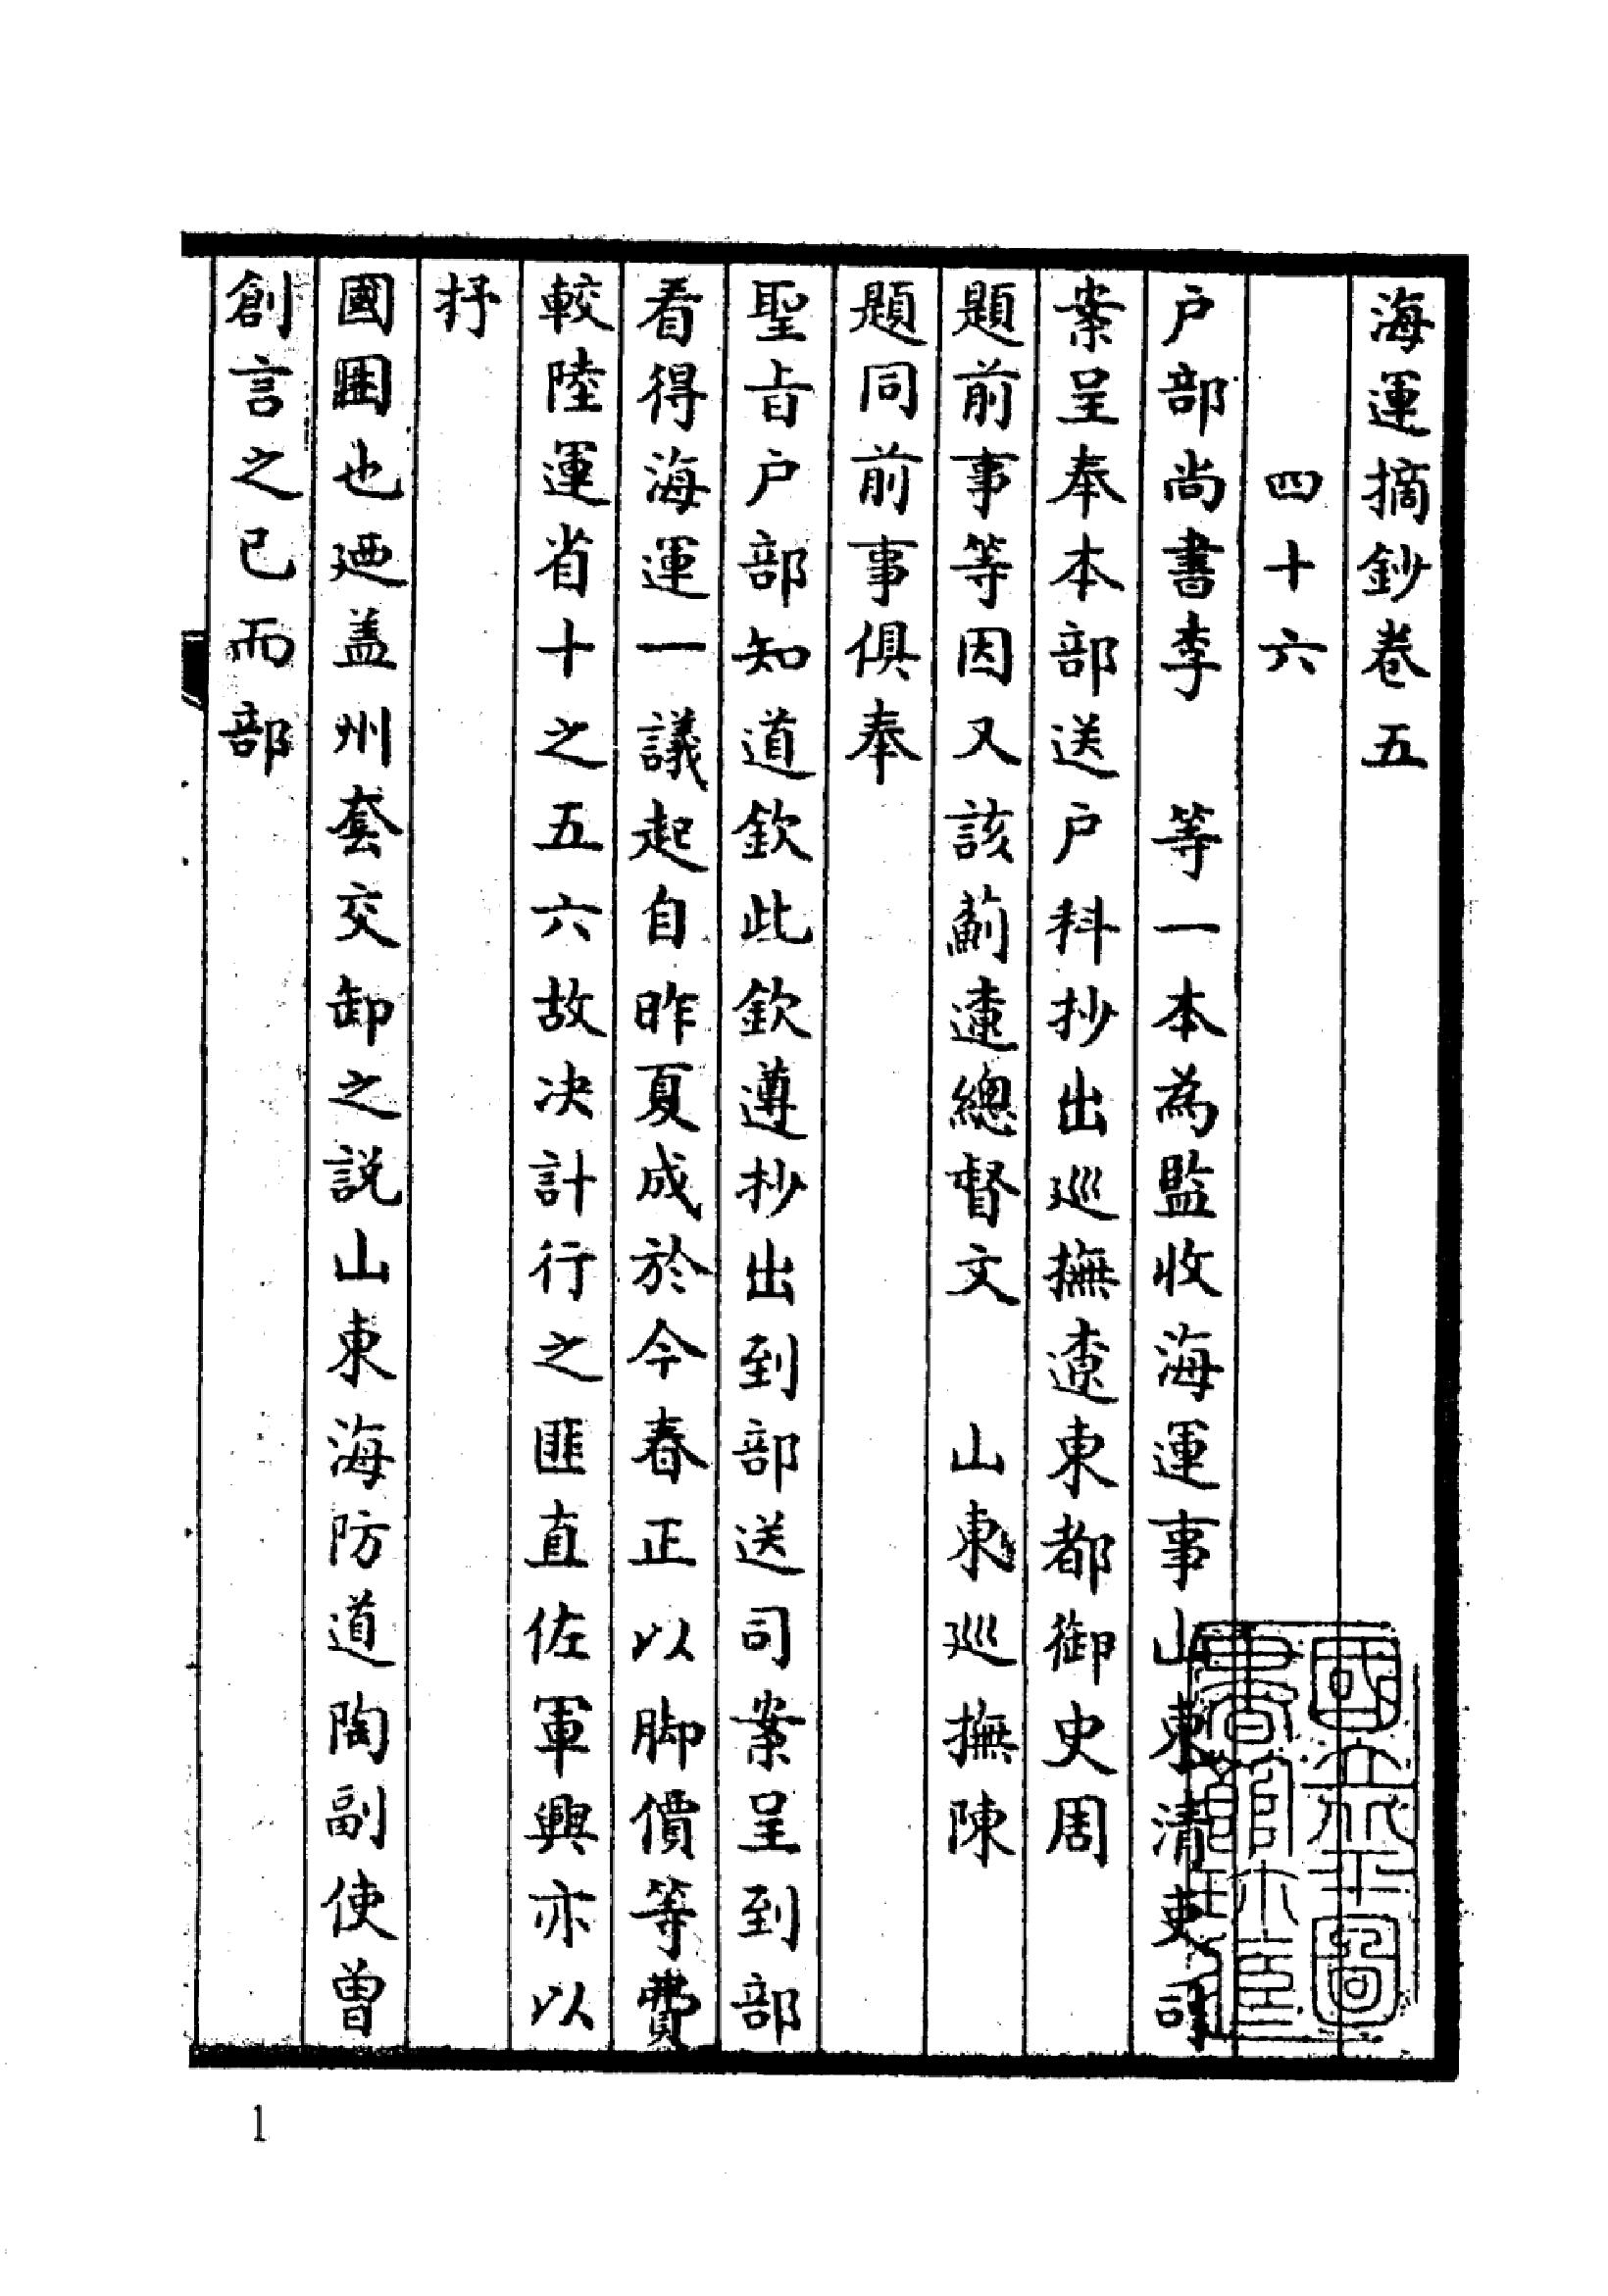 海運摘鈔卷五
四十六
戶部尚書李　等一本為監收海運事山東清吏司
案呈奉本部送戶科抄出巡撫遼東都御史周
題前事等因又該薊遼總督文　山東巡撫陳
題同前事俱奉
聖旨戶部知道欽此欽遵抄出到部送司案呈到部
看得海運一議起自昨夏成於今春正以脚價等費
較陸運省十之五六故决計行之匪直佐軍興亦以
抒
國困也廼盖州套交卸之説山東海防道陶副使曾
創言之已而部
國立北平圖
書館收藏
1